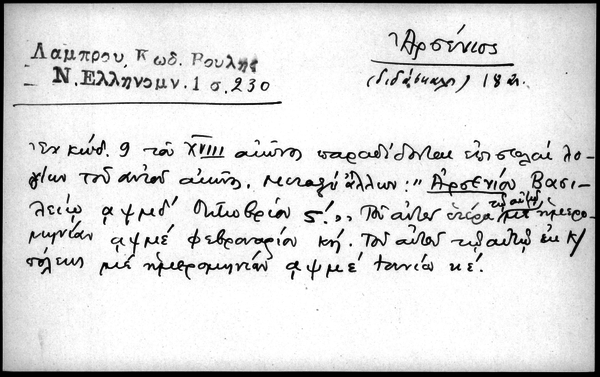 Λάμπρου, Κωδ. Βουλῆς
Ν. Ἑλληνομν. 1 σ. 230
Ἀρσένιος
(διδάσκαλος) 18 αι.
Ἐν κώδ. 9 τοῦ XVIII αἰῶνος παραδίδονται ἐπιστολαὶ λο-
γίων τοῦ αὐτοῦ αἰῶνος, μεταξὺ ἄλλων: "Ἀρσενίου Βασι-
λείῳ αψμδ' Ὀκτωβρίου 5'". Τοῦ αὐτοῦ ἑτέρα τῷ αὐτῷ μὲ ἡμερο-
μηνίαν αψμέ φεβρουαρίου κή. Τοῦ αὐτοῦ τῷ αὐτῷ ἐκ Κ/
πόλεως μὲ ἡμερομηνίαν αψμέ Ἰουνίου κέ.